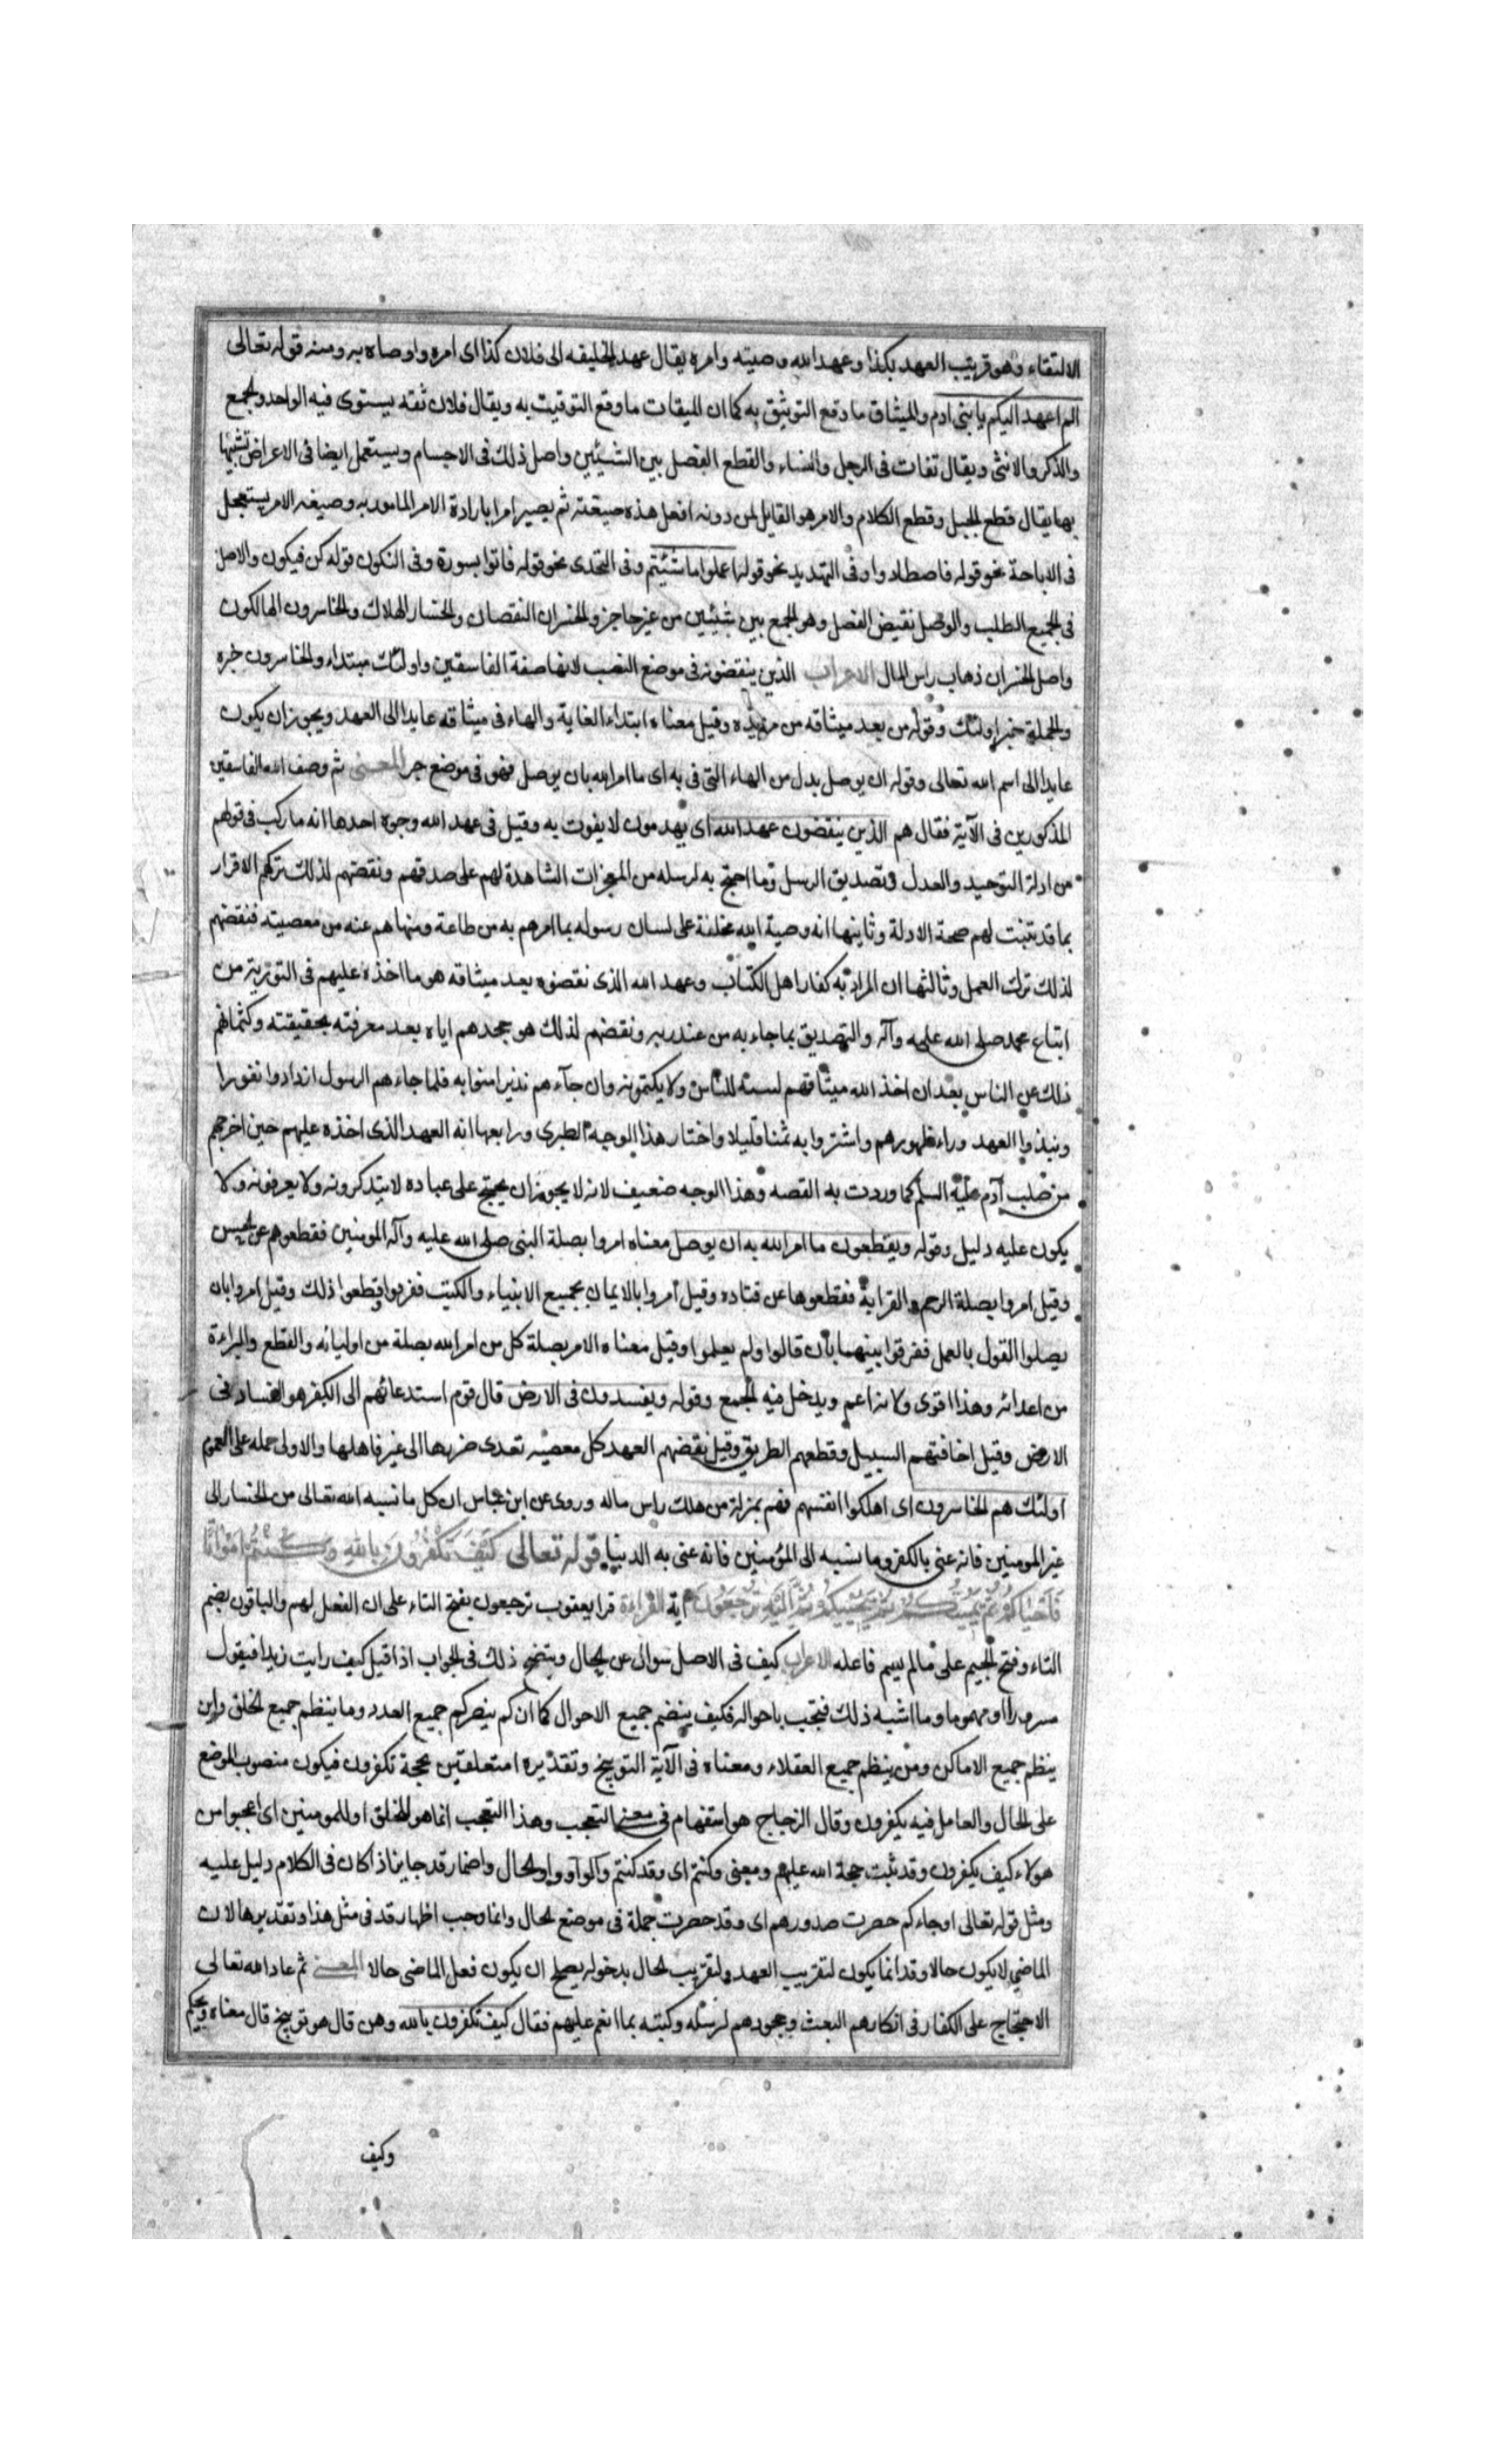 الالتقاء وهو قريب العهد بكذا وعهد الله وصيته وامره يقال عهد الخليفه الى فلان كذا اى امره واوصاه به ومنه قوله تعالى
الم اعهد اليكم يا بنى ادم والميثاق ما وقع التوثيق به كما ان الميقات ما وقع التوقيت به ويقال فلان ثقه يستوى فيه الواحد والجمع
والذكر والانثى ويقال ثقات فى الرجل والنساء والقطع الفصل بين الشيئين واصل ذلك فى الاجسام ويستعمل ايضا فى الاعراض تشبيها
بها يقال قطع الحبل وقطع الكلام والامر هو القايل لمن دونه افعل هذه صيغته ثم يصير امرا بارادة الامر المامور به وصيغه الامر يستعمل
فى الاباحة نحو قوله فاصطادوا وفى التهديد نحو قوله اعملوا ما شئيتم وفى التحدى نحو قوله فاتوا بسورة وفى التكون قوله كن فيكون والاصل
فى الجميع الطلب والوصل نقيض الفصل وهو الجمع بين شيئين من غير حاجز والخسران النقصان والخسار الهلاك والخاسرون الهالكون
واصل الخسران ذهاب راس المال الاعراب الذين ينقضونه فى موضع النصب لانها صفة الفاسقين واولئك مبتداء والخاسرون خبره
والجملة خبر اولئك وقوله من بعد ميثاقه من مزيده وقيل معناه ابتداء الغاية والهاء فى ميثاقه عايد الى العهد ويجوز ان يكون
عايدا الى اسم الله تعالى وقوله ان يوصل بدل من الهاء التى فى به اى ما امر الله بان يوصل فهو فى موضع جر المعنى ثم وصف الله الفاسقين
المذكورين فى الآية فقال هم الذين ينقضون عهد الله اى يهدمون لا يفوت به وقيل فى عهد الله وجوه احدها انه ما ركب فى قولهم
من ادلة التوحيد والعدل وتصديق الرسل وما احتج به لرسله من المعجزات الشاهدة لهم على صدقهم ونقضهم لذلك تركهم الاقرار
بما قد تثبت لهم صحة الادلة وثانيها انه وصية الله بخلقه على لسان رسوله بما امرهم به من طاعة ونهاهم عنه من معصيته فنقضهم
لذلك ترك العمل وثالثها ان المراد به كفار اهل الكتاب وعهد الله الذى نقضوه بعد ميثاقه هو ما اخذه عليهم فى التورية من
اتباع محمد صلى الله عليه وآله والتصديق بما جاء به من عند ربه ونقضهم لذلك هو جحدهم اياه بعد معرفته بحقيقته وكتمانهم
ذلك عن الناس بعد ان اخذ الله ميثاقهم لسنه للناس ولا يكتمونه وان جآءهم نذير امنوا به فلما جاءهم الرسول ازدادوا نفورا
ونبذوا العهد وراء ظهورهم واشتروا به ثمنا قليلا واختار هذا الوجه الطبرى ورابعها انه العهد الذى اخذه عليهم حين اخرجهم
من صلب آدم عليه السلم كما وردت به القصه وهذا الوجه ضعيف لانه لا يجوز ان يحتج على عباده لا يتذكرونه ولا يعرفونه ولا
يكون عليه دليل وقوله ويقطعون ما امر الله به ان يوصل معناه امروا بصلة النبى صلى الله عليه وآله المومنين فقطعوهم عن الحسن
وقيل امروا بصلة الرحم والقرابة فقطعوها عن قتاده وقيل امروا بالايمان بجميع الانبياء والكتب ففرقوا وقطعوا ذلك وقيل امروا بان
يصلوا القول بالعمل ففرقوا بينهما بان قالوا ولم يعلموا وقيل معناه الامر بصلة كل من امر الله بصلة من اوليائه والقطع والبراءة
من اعدائه وهذا اقوى ولانه اعم ويدخل فيه الجمع وقوله ويفسدون فى الارض قال قوم استدعائهم الى الكفر هو الفساد فى
الارض وقيل اخافتهم السبيل وقطعهم الطريق وقيل نقضهم العهد كل معصيه تعدى ضررها الى غير فاعلها والاولى حمله على العموم
اولئك هم الخاسرون اى اهلكوا انفسهم فهم بمنزلة من هلك راس ماله وروى عن ابن عباس ان كل ما نسبه الله تعالى من الخسار الى
غير المومنين فانه عنى بالكفر وما نسبه الى المؤمنين فانه عنى به الدنيا قوله تعالى كيف تكفرون بالله وكنتم امواتا
فاحياكم ثم يميتكم ثم يحييكم ثم اليه ترجعون اية القراءة قرا يعقوب ترجعون بفتح التاء على ان الفعل لهم والباقون بضم
التاء وفتح الجيم على ما لم يسم فاعله الاعراب كيف فى الاصل سوال عن الحال ويتضح ذلك فى الجواب اذا قيل كيف رايت زيدا فيقول
مسرورا او مهموما وما اشبه ذلك فتجب باحواله فكيف ينضم جميع الاحوال كما ان كم ينصركم جميع العدد وما ينظم جميع الخلق واين
ينظم جميع الاماكن ومن ينظم جميع العقلاء ومعناه فى الآية التوبيخ وتقديره امتعلقين بحجة تكفرون فيكون منصوب الموضع
على الحال والعامل فيه يكفرون وقال الزجاج هو استفهام فى معنى التعجب وهذا التعجب انما هو للخلق او للمومنين اى اعجبوا من
هولاء كيف يكفرون وقد ثبت حجة الله عليهم ومعنى وكنتم اى وقد كنتم والواو واو الحال واضمار قد جايز اذا كان فى الكلام دليل عليه
ومثل قوله تعالى او جاءكم حصرت صدورهم اى وقد حصرت جملة فى موضع الحال وانما وجب اظهار قد فى مثل هذا وتقديرها لان
الماضى لا يكون حالا وقد انما يكون لتقريب العهد ولتقريب الحال بدخوله يصلح ان يكون فعل الماضى حالا المعنى ثم عاد الله تعالى
الاحتجاج على الكفار فى انكارهم البعث وجحودهم لرسله وكتبه بما انعم عليهم فقال كيف تكفرون بالله وهن قال هو توبيخ قال معناه ويحكم
وكيف